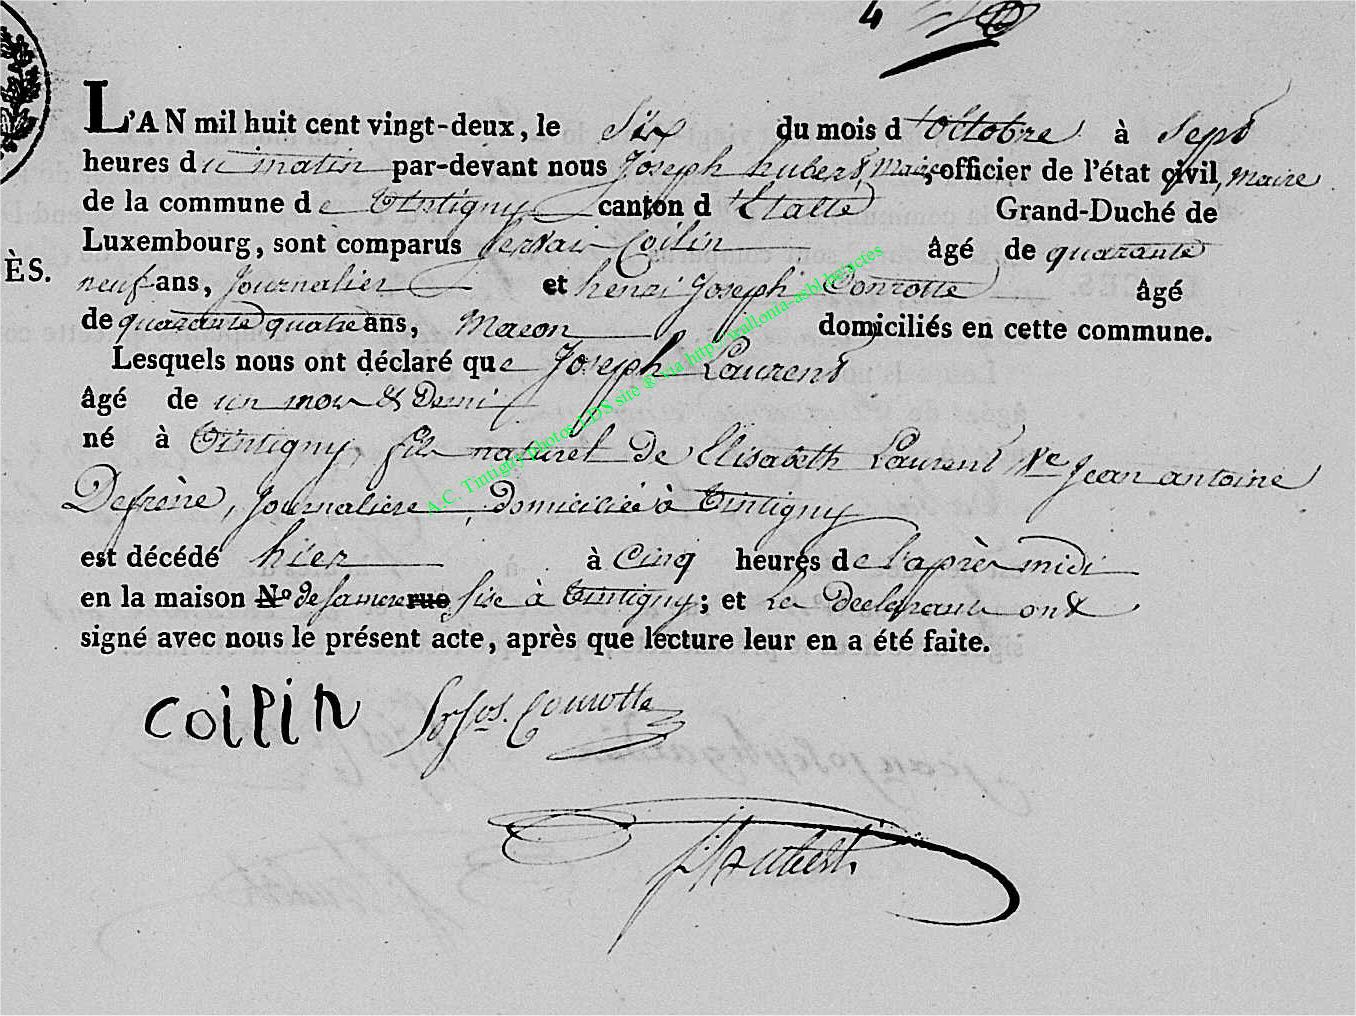 4
L'AN mil huit cent vingt-deux, le Six du mois d'octobre à Sept
heures du matin par-devant nous Joseph hubert, Maire, officier de l'état civil, maire
de la commune de Tintigny canton d'Etalle Grand-Duché de
Luxembourg, sont comparus Servais Coilin âgé de quarante
ÈS.
neuf ans, Journalier et henri Joseph Conrotte âgé
de quarante quatre ans, Macon domiciliés en cette commune.
Lesquels nous ont déclaré que Joseph Laurent
âgé de un mois & Demi
né à Tintigny, fils naturel de Elisabeth Laurent Ve Jean antoine
Defrène, Journaliere, domiciliée à Tintigny
est décédé hier à Cinq heures de l'après midi
en la maison No de sa mere rue sise à Tintigny; et Les Declarants ont
signé avec nous le présent acte, après que lecture leur en a été faite.
COILIN Conrotte
Hubert
A.C. Tintigny photos LDS site & via http://wallonia-asbl.be/actes